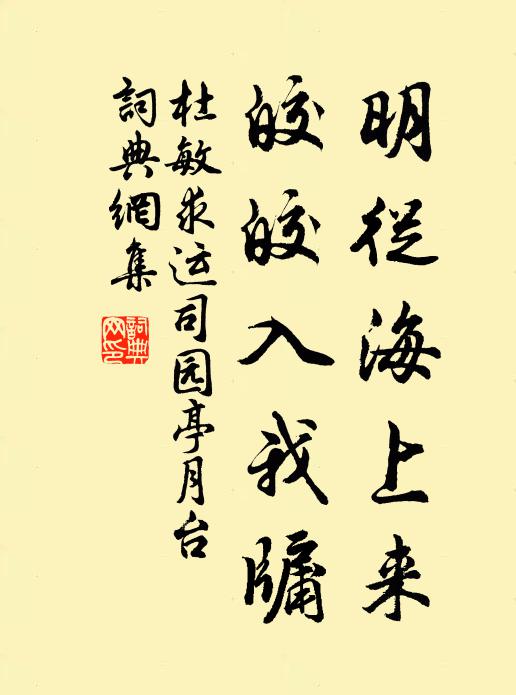 明從海上来
皎皎入我牖
杜敏求运司园亭月台
詞典網集
詞典網印